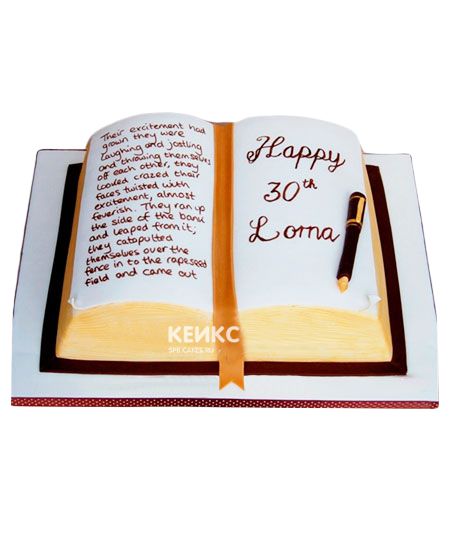 Their excitement had
grown they were
laughing and jostling
and throwing themselves
off each other, they
looked crazed their
faces twisted with
excitement, almost
feverish. They ran up
the side of the bank
and leaped from it;
they catapulted
themselves over the
fence in to the rapeseed
field and came out
Happy
30th
Lorna
КЕЙКС
SPB CAKES.RU